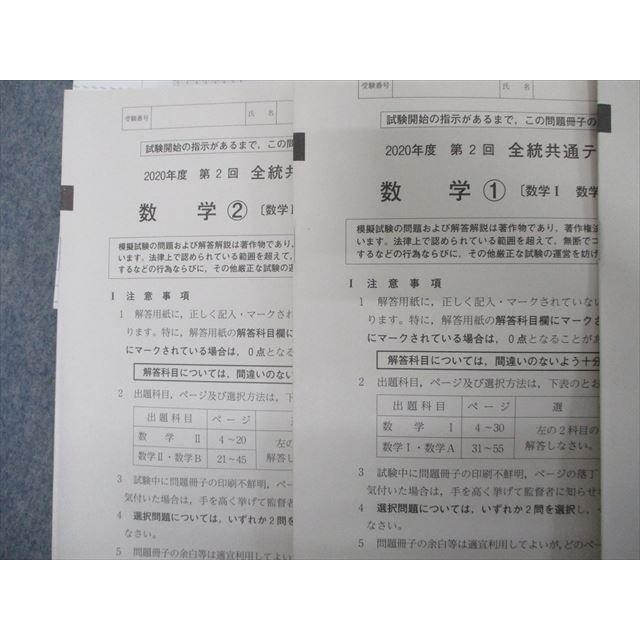 受験番号
氏 名
試験開始の指示があるまで，この問
2020年度 第2回 全統共
数 学 ② 〔数学Ⅱ
模擬試験の問題および解答解説は著作物であり，
います。法律上で認められている範囲を超えて，
するなどの行為ならびに，その他厳正な試験の運
Ⅰ 注 意 事 項
1 解答用紙に，正しく記入・マークされ
ります。特に，解答用紙の解答科目欄に
にマークされている場合は，0点となる
解答科目については，間違いのない
2 出題科目，ページ及び選択方法は，下
出 題 科 目 ペ ー ジ
数 学 Ⅱ 4～20 左の
数学Ⅱ・数学B 21～45 解答し
3 試験中に問題冊子の印刷不鮮明，ペー
気付いた場合は，手を高く挙げて監督者
4 選択問題については，いずれか2問を
なさい。
5 問題冊子の余白等は適宜利用してよい
受験番号
氏 名
試験開始の指示があるまで，この問題冊子の
2020年度 第2回 全統共通テ
数 学 ① 〔数学Ⅰ 数学
模擬試験の問題および解答解説は著作物であり，著作権法
います。法律上で認められている範囲を超えて，無断でコ
するなどの行為ならびに，その他厳正な試験の運営を妨げ
Ⅰ 注 意 事 項
1 解答用紙に，正しく記入・マークされていない
ります。特に，解答用紙の解答科目欄にマークされ
にマークされている場合は，0点となることがあ
解答科目については，間違いのないよう十分
2 出題科目，ページ及び選択方法は，下表のとお
出 題 科 目 ペ ー ジ 選
数 学 Ⅰ 4～30 左の2科目の
数学Ⅰ・数学A 31～55 解答しなさい。
3 試験中に問題冊子の印刷不鮮明，ページの落丁
気付いた場合は，手を高く挙げて監督者に知らせ
4 選択問題については，いずれか2問を選択し，
なさい。
5 問題冊子の余白等は適宜利用してよいが，どのペー